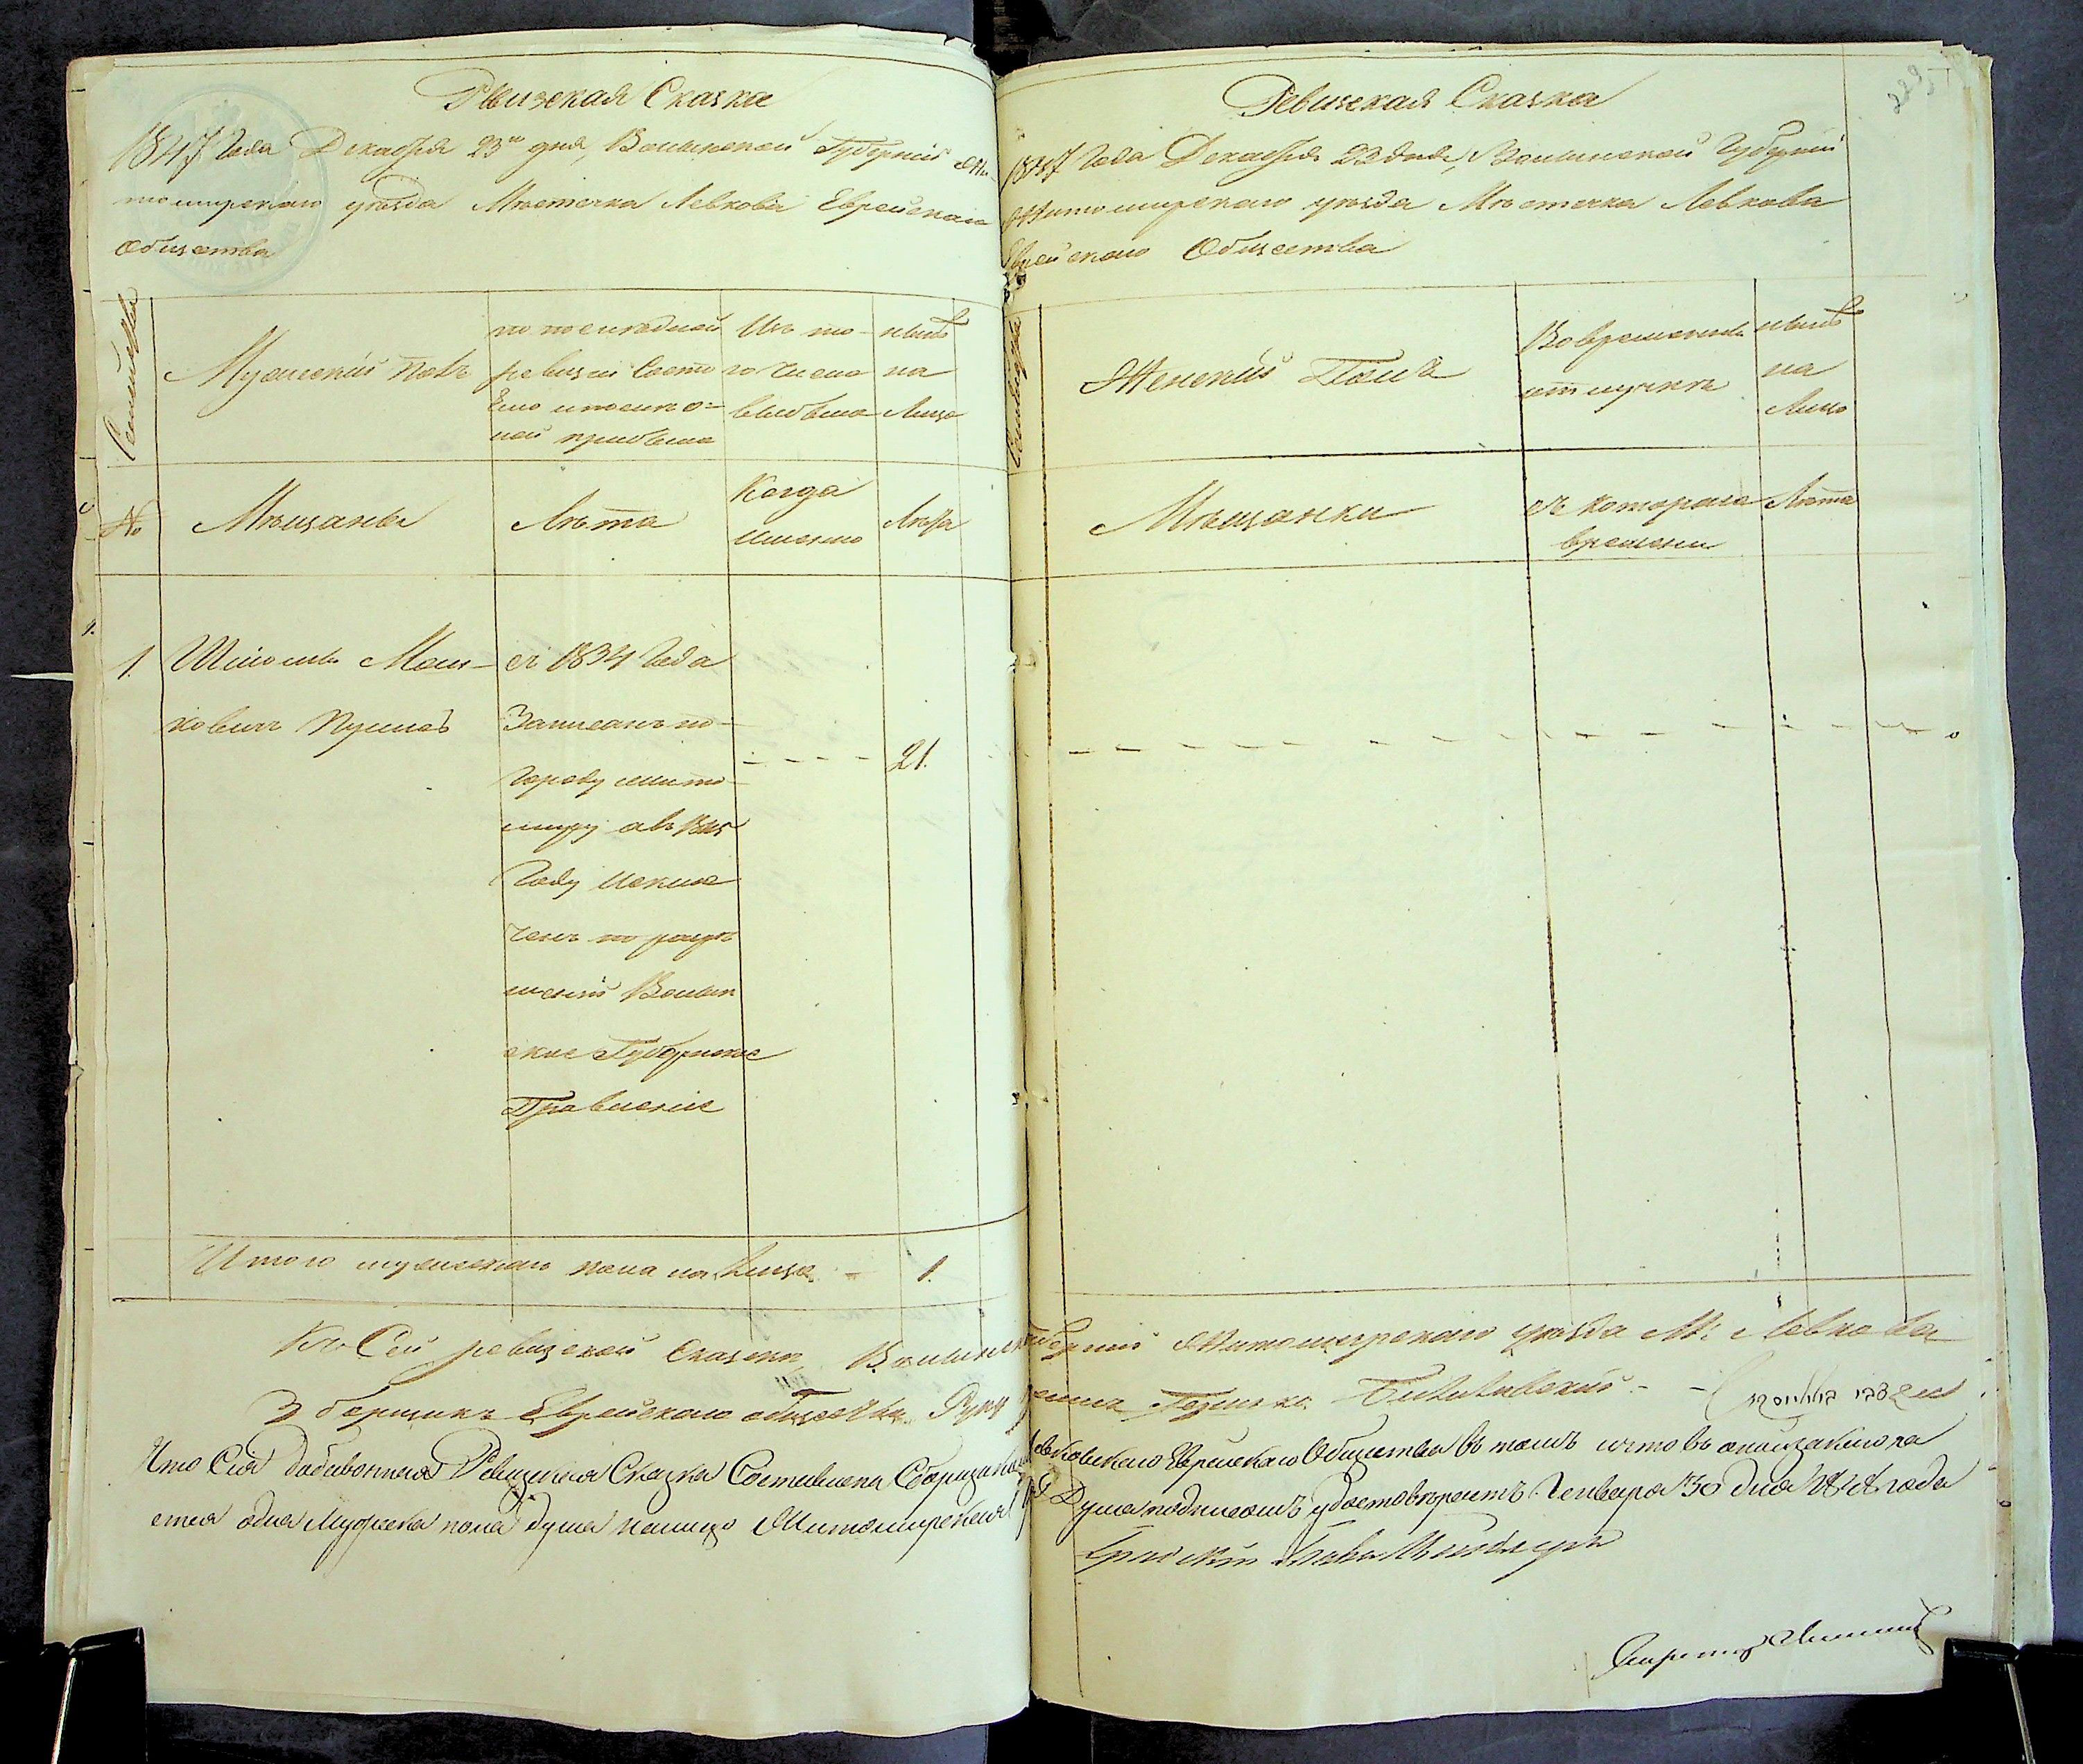 Ревизская Сказка
1847 Года Декабря 23го дня, Волынской Губерніи Жи-
томирскаго уѣзда Мѣстечка Левкова Еврейскаго
Общества
Семейства
Мужескій Полъ
по последней
ревизіи Состо
яло и после о-
ной прибыло
Изъ то-
го числа
выбыло
нынѣ
на
Лицо
№
Мѣщаны
Лѣта
Когда
имено
Лѣта
1.
Шмоль Мош-
ковичь
съ 1834 Года
Записанъ по
Городу Жито-
миру а въ 1845
Году Исклю
ченъ по разрѣ
шенію Волын
ское Губернское
Правленіе
21.
Итого мужескаго пола на лицо - 1.
Ревизская Сказка
1847 Года Декабря 23 дня, Волынской Губерніи
Житомирскаго уѣзда Мѣстечка Левкова
Еврейскаго Общества
Семейства
Женскій Полъ
Во временной
отлучкѣ
нынѣ
на
Лицо
Мѣщанки
съ котораго
времени
Лѣта
Къ Сей ревизской сказки, Волынской Губерніи Житомирскаго уѣзда М: Левкова
Зборщикъ Еврейскаго общества
Что Сія Добавочная Ревизская Сказка Составлена Сборщикомъ Левковскаго Еврейскаго Общества въ томъ что въ оной
одна Мужеска пола душа налицо Житомирская Дума подписомъ удостовѣряетъ Генваря 30 дня 1848 года